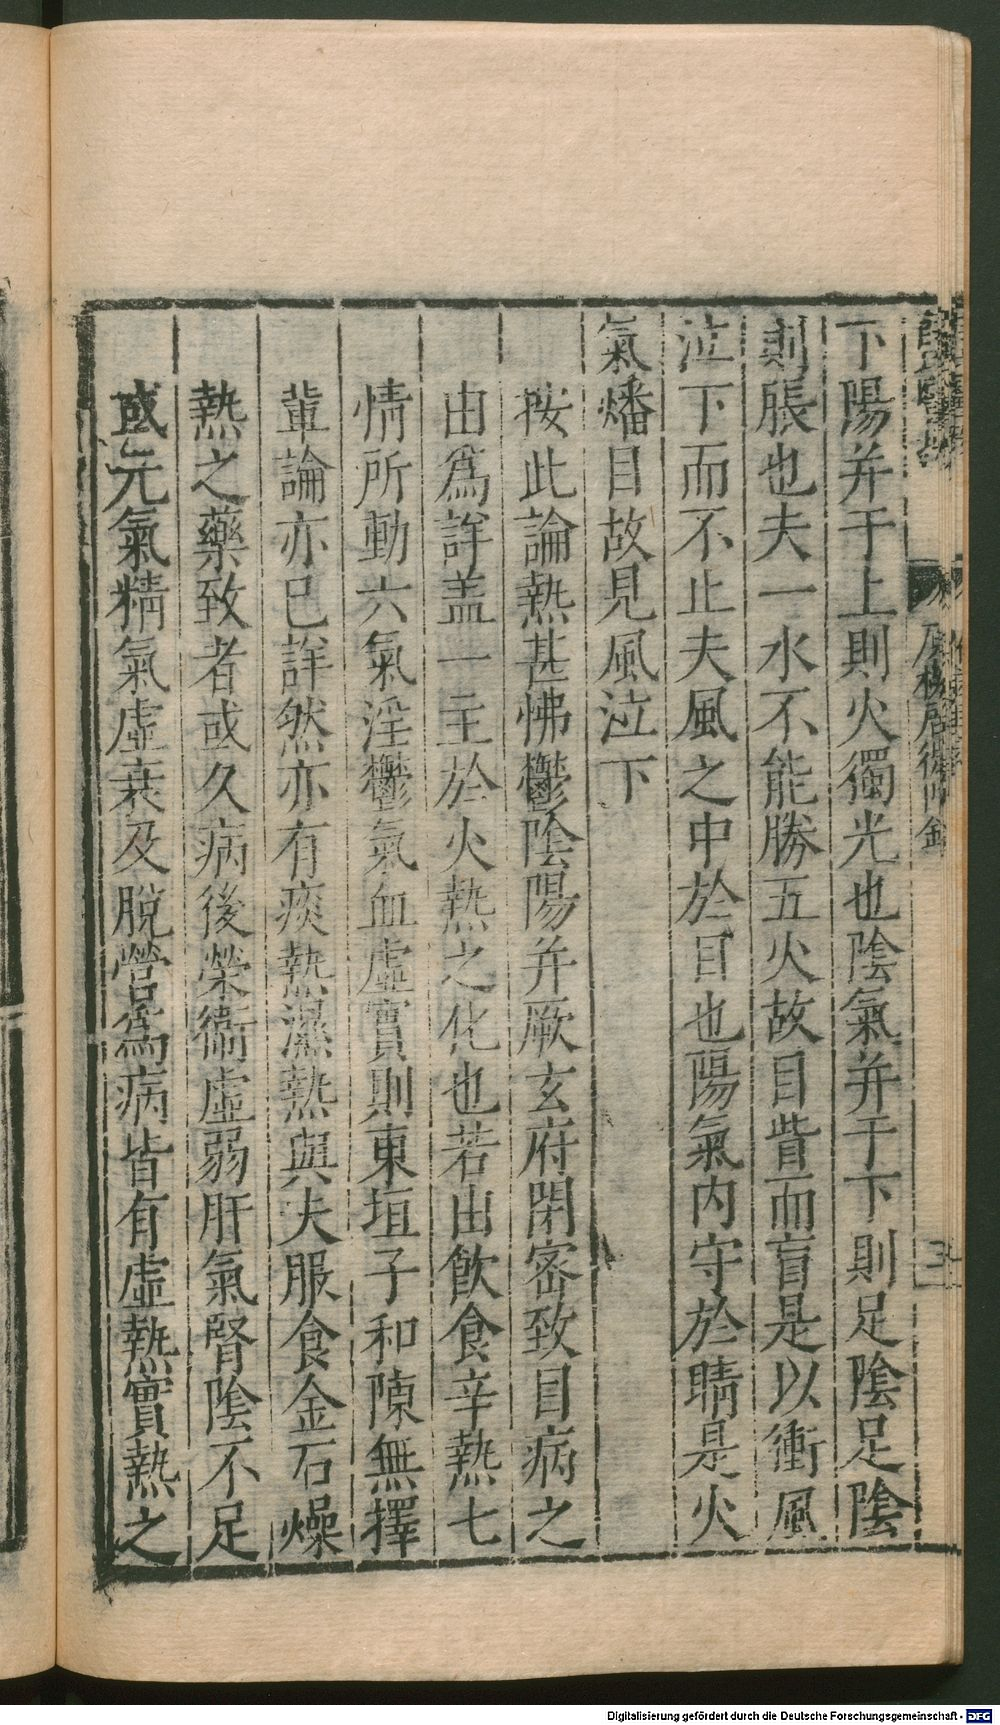 下陽并于上則火獨光也陰氣并于下則足陰足陰
則脹也夫一水不能勝五火故目眥而盲是以衝風
泣下而不止夫風之中於目也陽氣內守於睛是火
氣燔目故見風泣下
按此論熱甚怫鬱陰陽并厥玄府閉密致目病之
由爲詳盖一主於火熱之化也若由飲食辛熱七
情所動六氣淫鬱氣血虛實則東垣子和陳無擇
軰論亦已詳然亦有痰熱濕熱與夫服食金石燥
熱之藥致者或久病後榮衞虛弱肝氣腎陰不足
或元氣精氣虛衰及脫營爲病皆有虛熱實熱之
三
Digitalisierung gefördert durch die Deutsche Forschungsgemeinschaft - DFG